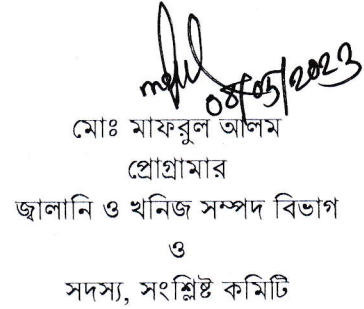 08/05/2023
মোঃ মাফরুল আলম
প্রোগ্রামার
জ্বালানি ও খনিজ সম্পদ বিভাগ
ও
সদস্য, সংশ্লিষ্ট কমিটি